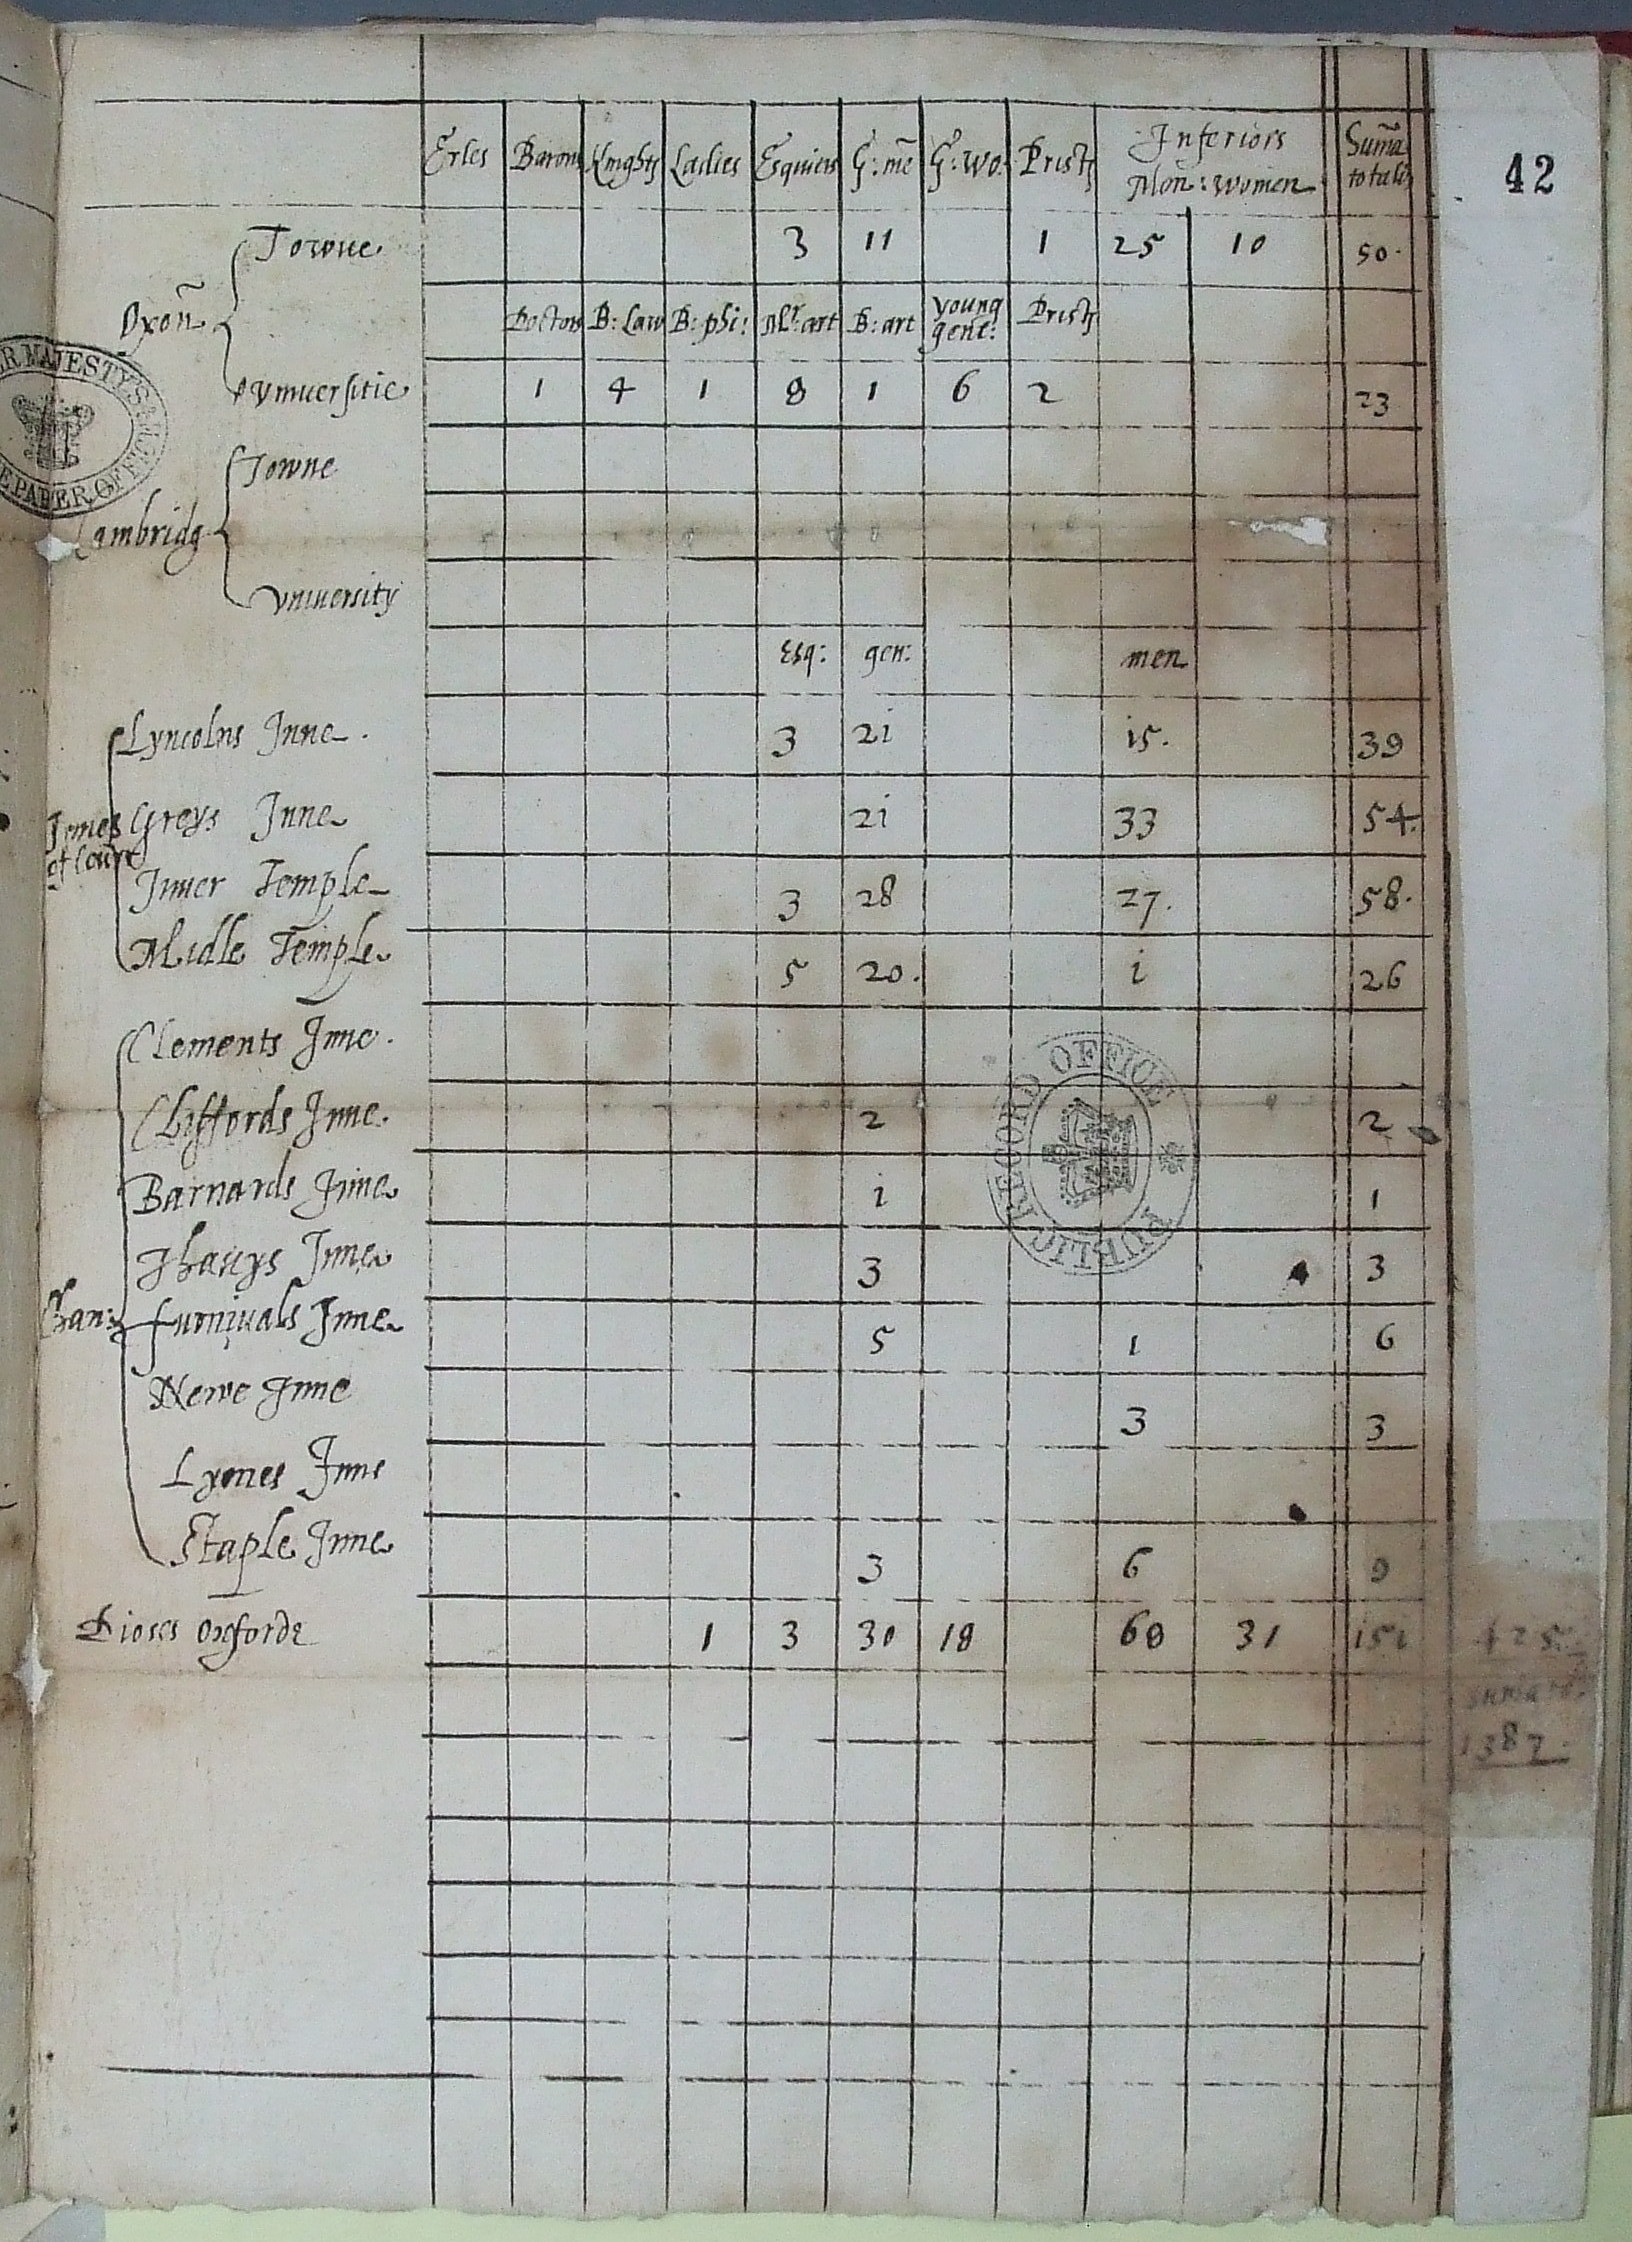 42
Erles Barons Knights Ladies Esquiers G: me G: wo: Prists Inferiors Suma
Men : women totalis
Towne 3 11 1 25 10 50.
Oxon Doctors B: Law B: phi: Mr: art B: art young Prists
gent:
Vniuersitie 1 4 1 8 1 6 2 23
Towne
Cambridg
Vniuersity
Esq: gen: men
Lyncolns Inne. 3 21 15. 39
Innes Greys Inne 21 33 54.
of Court
Inner Temple 3 28 27. 58.
Midle Temple 5 20. i 26
Clements Inne.
Cliffords Inne. 2 2
Barnards Inne i 1
Thauys Inne 3 3
Chan: furniuals Inne 5 1 6
Newe Inne 3 3
Lyones Inne
Staple Inne 3 6 9
Dioses Oxforde 1 3 30 18 68 31 151 425.
1382.
HER MAJESTY'S STATE PAPER OFFICE
PUBLIC RECORD OFFICE